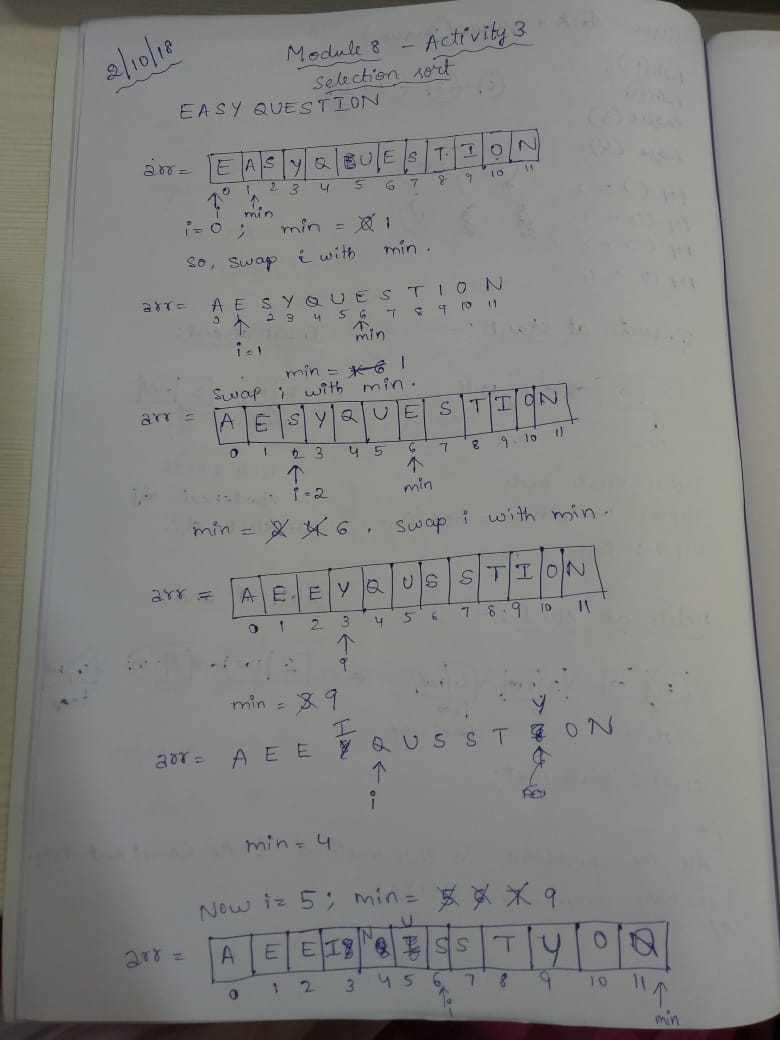 2/10/18
Module 8 - Activity 3
Selection sort
EASY QUESTION
arr = E A S Y Q U E S T I O N
0 1 2 3 4 5 6 7 8 9 10 11
i min
i = 0 ; min = 0 1
so, swap i with min.
arr = A E S Y Q U E S T I O N
0 1 2 3 4 5 6 7 8 9 10 11
i = 1 min
min = 1 6 1
Swap i with min.
arr = A E S Y Q U E S T I O N
0 1 2 3 4 5 6 7 8 9 10 11
i = 2 min
min = 2 4 6 . Swap i with min.
arr = A E E Y Q U S S T I O N
0 1 2 3 4 5 6 7 8 9 10 11
min = 3 9
I Y
arr = A E E Q U S S T O N
i
min = 4
Now i = 5 ; min = 5 6 7 9
N U
arr = A E E I S S T Y O Q
0 1 2 3 4 5 6 7 8 9 10 11
i min